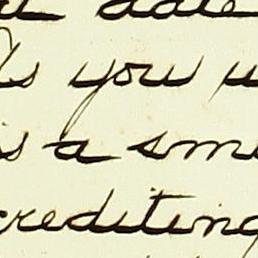 date
As you
is a
crediting